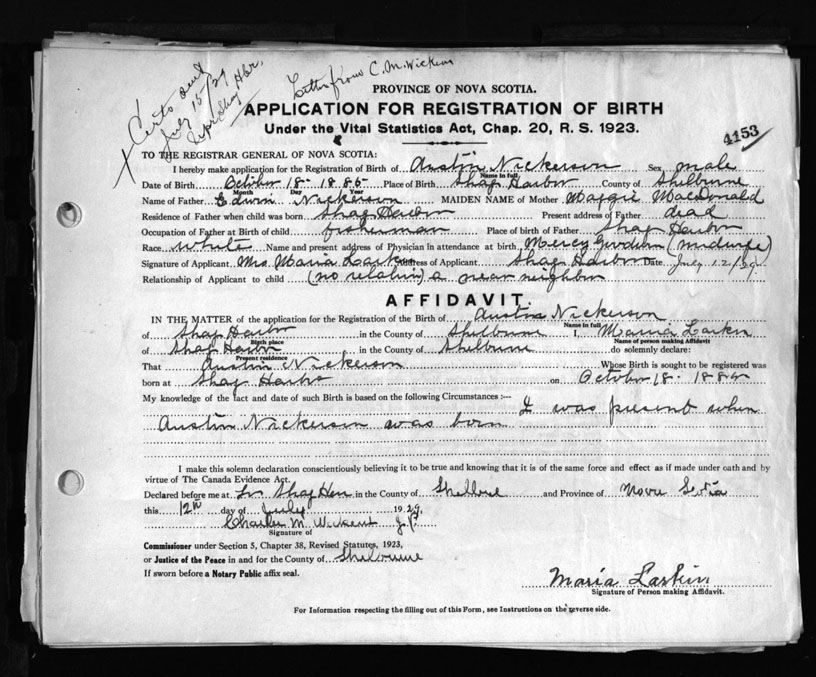 Certs sent
July 15/29
Letter from C. M. Wickens
PROVINCE OF NOVA SCOTIA.
APPLICATION FOR REGISTRATION OF BIRTH
Under the Vital Statistics Act, Chap. 20, R. S. 1923.
4153
TO THE REGISTRAR GENERAL OF NOVA SCOTIA:
I hereby make application for the Registration of Birth of Austin Nickerson Sex male
Name in full
Date of Birth October 18. 1885 Place of Birth Shag Harbor County of Shelburne
Month Day Year
Name of Father Edwin Nickerson MAIDEN NAME of Mother Maggie MacDonald
Residence of Father when child was born Shag Harbor Present address of Father dead
Occupation of Father at Birth of child fisherman Place of birth of Father Shag Harbor
Race White Name and present address of Physician in attendance at birth Mercy (midwife)
Signature of Applicant Mrs Maria Larkin Address of Applicant Shag Harbor Date July 12/29
Relationship of Applicant to child (no relation) a near neighbor
AFFIDAVIT.
IN THE MATTER of the application for the Registration of the Birth of Austin Nickerson
Name in full
of Shag Harbor in the County of Shelburne I, Maria Larkin
Birth place Name of person making Affidavit
of Shag Harbor in the County of Shelburne do solemnly declare:
Present residence
That Austin Nickerson Whose Birth is sought to be registered was
born at Shag Harbor on October 18. 1885
My knowledge of the fact and date of such Birth is based on the following Circumstances :— I was present when
Austin Nickerson was born
I make this solemn declaration conscientiously believing it to be true and knowing that it is of the same force and effect as if made under oath and by
virtue of The Canada Evidence Act.
Declared before me at Shag in the County of Shelburne and Province of Nova Scotia
this 12th day of July 1929,
Charles M. Wickens J. P.
Signature of
Commissioner under Section 5, Chapter 38, Revised Statutes, 1923,
or Justice of the Peace in and for the County of Shelburne
If sworn before a Notary Public affix seal.
Maria Larkin
Signature of Person making Affidavit.
For Information respecting the filling out of this Form, see Instructions on the reverse side.